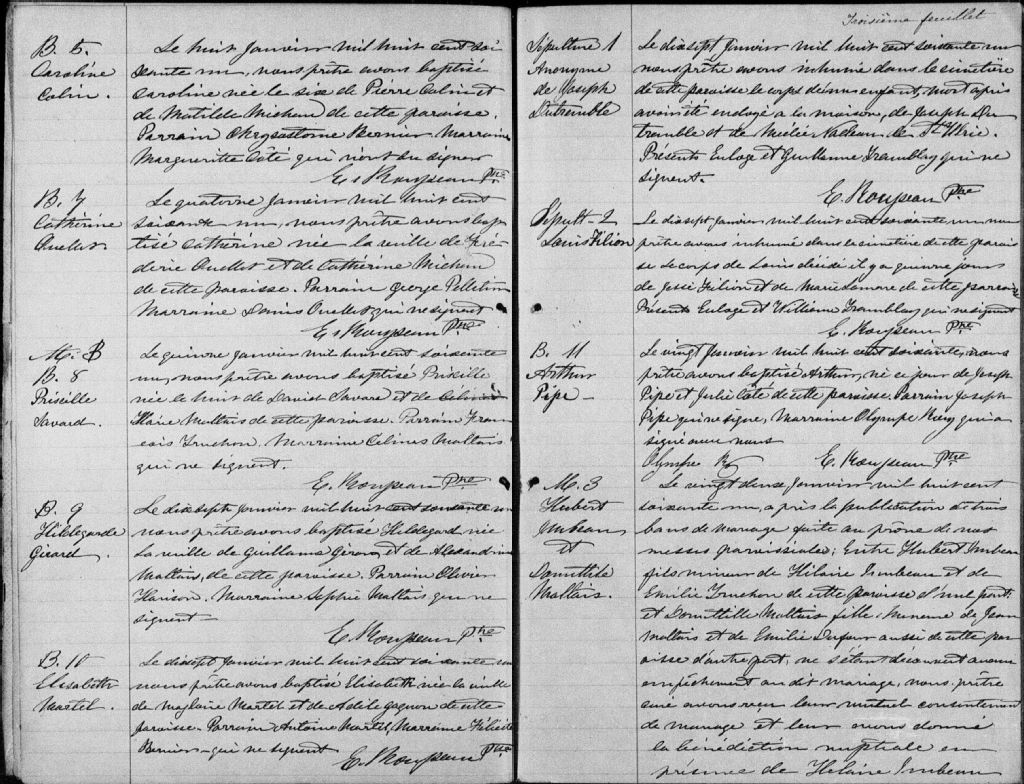 B. 5.
Caroline
Colin.
Le huit Janvier mil huit cent soi
xante un, nous prêtre avons baptisé
Caroline née le six de Pierre Colin et
de Matilde Michaud de cette paroisse.
Parrain Chrysostome Bernier Marraine
Margueritte Côté qui n'ont su signer
E. Roupeau Ptre
B. 7
Cathérine
Ouellet.
Le quatorze Janvier mil huit cent
soixante un, nous prêtre avons bap
tisé Cathérine née la veille de Fré-
dérie Ouellet et de Cathérine Michaud
de cette paroisse. Parrain George Pelletier
Marraine Louis Ouellet qui ne signent
E. Roupeau Ptre
M. B
B. 8
Priscille
Savard.
Le quinze Janvier mil huit cent soixante
un, nous prêtre avons baptisé Priscille
née le huit de David Savard et de
Maltais de cette paroisse. Parrain Fran
cois Truchon. Marraine Célina Maltais
qui ne signent.
E. Roupeau Ptre
B. 9
Hildegarde
Girard.
Le dix sept Janvier mil huit cent soixante un
nous prêtre avons baptisé Hildegard née
la veille de Guillaume Girard et de Alexandrine
Maltais, de cette paroisse. Parrain Olivier
Marraine Sophie Maltais qui ne
signent
E. Roupeau Ptre
B. 10
Elisabeth
Martel.
Le dix sept Janvier mil huit cent soixante un
nous prêtre avons baptisé Elisabeth née la veille
de Martel et de Adèle Gagnon de cette
paroisse. Parrain Antoine Martel, Marraine Félicité
Bernier qui ne signent
E. Roupeau Ptre
Troisième feuillet
Sépulture 1
Anonyme
de Joseph
Dutremble
Le dix sept Janvier mil huit cent soixante un
nous prêtre avons inhumé dans le cimetière
de cette paroisse le corps d'un enfant, mort après
avoir été ondoyé à la maison, de Joseph Du
tremble et de Nadeau, de St
Présents Euloge et Guillaume Tremblay qui ne
signent.
E. Roupeau Ptre
Sépult- 2
Louis Filion
Le dix sept Janvier mil huit cent soixante un nous
prêtre avons inhumé dans le cimetière de cette parois
se le corps de Louis décédé il y a quinze jours
de José Filion et de Marie Lamarre de cette paroisse
Présents Euloge et William Tremblay qui ne signent
E. Roupeau Ptre
B. 11
Arthur
Pipe
Le vingt Janvier mil huit cent soixante, nous
prêtre avons baptisé Arthur, né ce jour de Joseph
Pipe et Julie Côté de cette paroisse. Parrain Joseph
Pipe qui ne signe, Marraine Olympe Roy qui a
signé avec nous
Olympe Roy E. Roupeau Ptre
M. 3
Hubert
Imbeau
et
Domithile
Maltais.
Le vingt deux Janvier mil huit cent
soixante un, après la publication de trois
bans de mariage faite au prône de nos
messes paroissiales; Entre Hubert Imbeau
fils mineur de Hilaire Imbeau et de
Emilie Truchon de cette paroisse d'une part:
et Domithile Maltais fille mineure de Jean
Maltais et de Emilie Dufour aussi de cette par
oisse d'autre part; ne s'étant découvert aucun
empêchement au dit mariage, nous, prêtre
curé avons reçu leur mutuel consentement
de mariage et leur avons donné
la bénédiction nuptiale en
présence de Hilaire Imbeau